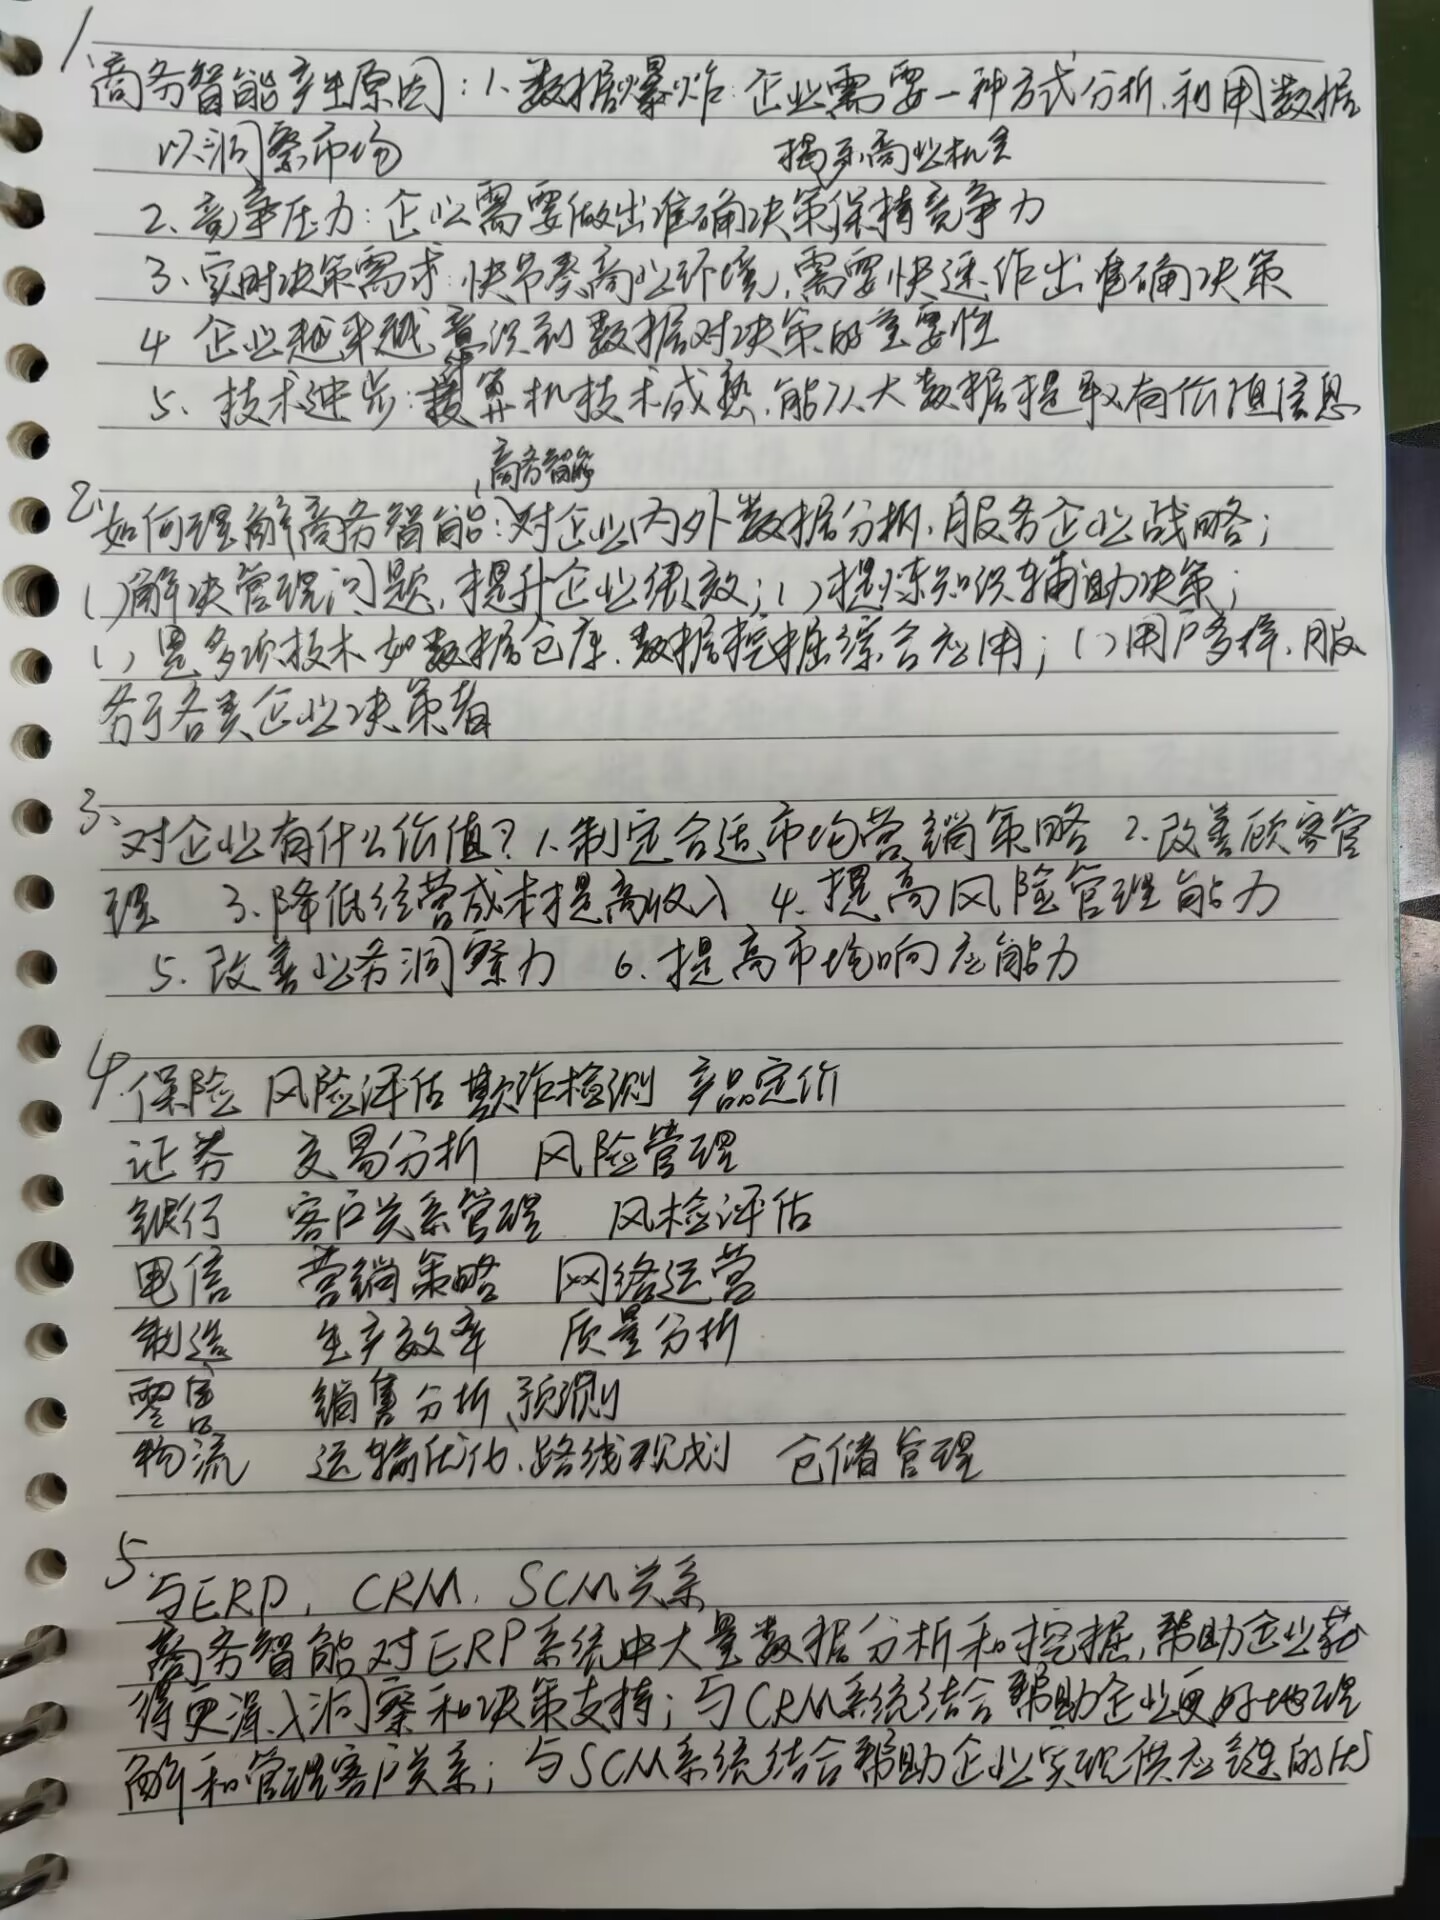 1、
商务智能产生原因：1、数据爆炸：企业需要一种方式分析、利用数据
以洞察市场 揭示商业机会
2、竞争压力：企业需要做出准确决策保持竞争力
3、实时决策需求：快节奏商业环境，需要快速作出准确决策
4 企业越来越意识到数据对决策的重要性
5、技术进步：计算机技术成熟，能从大数据提取有价值信息
商务智能
2、如何理解商务智能：对企业内外数据分析，服务企业战略；
（）解决管理问题，提升企业绩效；（）提炼知识辅助决策；
（）是多项技术如数据仓库、数据挖掘综合应用；（）用户多样，服
务于各类企业决策者
3、对企业有什么价值？1、制定合适市场营销策略 2、改善顾客管
理 3、降低经营成本提高收入 4、提高风险管理能力
5、改善业务洞察力 6、提高市场响应能力
4、保险 风险评估 欺诈检测 产品定价
证券 交易分析 风险管理
银行 客户关系管理 风检评估
电信 营销策略 网络运营
制造 生产效率 质量分析
零售 销售分析、预测
物流 运输优化、路线规划 仓储管理
5、与ERP、CRM、SCM关系
商务智能对ERP系统中大量数据分析和挖掘，帮助企业获
得更深入洞察和决策支持；与CRM系统结合帮助企业更好地理
解和管理客户关系；与SCM系统结合帮助企业实现供应链的优